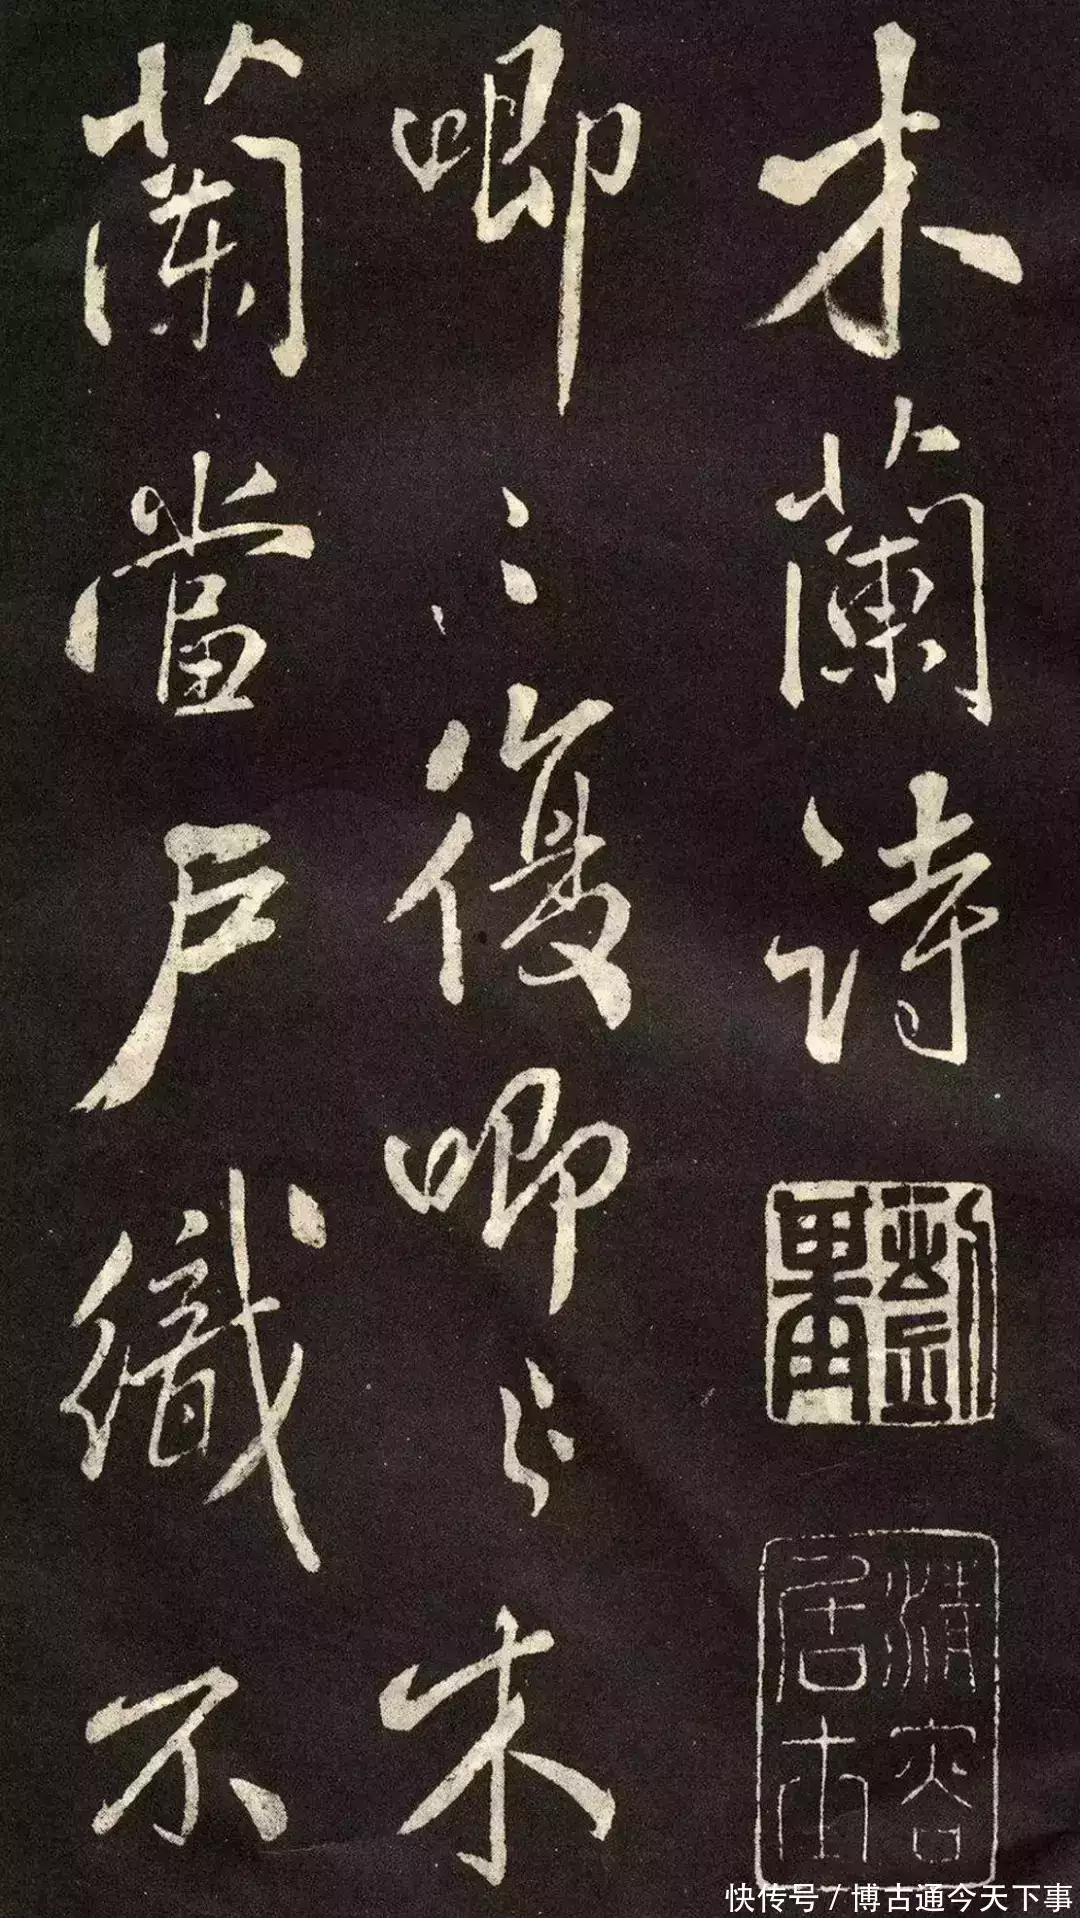 木蘭詩
清容
居士
唧〻復唧〻木
蘭當戶織不
快传号 / 博古通今天下事